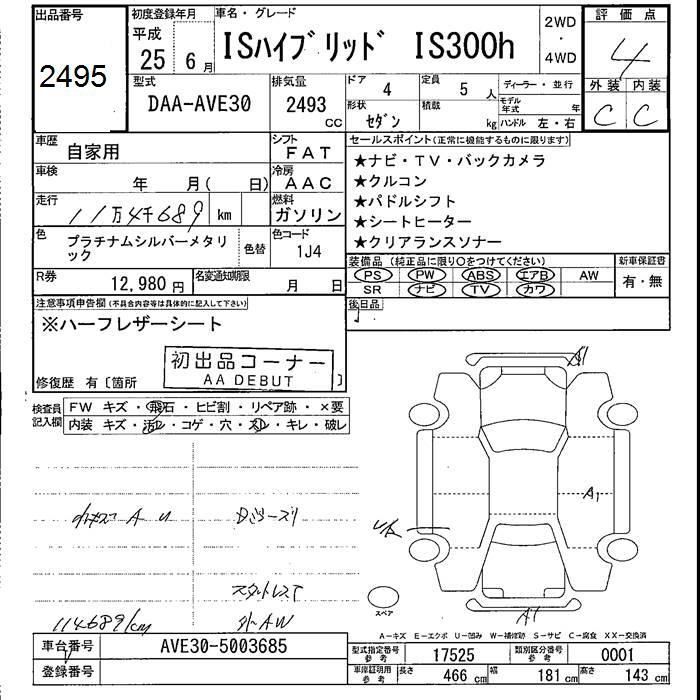 出品番号
2495
初度登録年月
平成
25 6月
車名・グレード
ISハイブリッド IS300h
2WD
・
4WD
評価点
4
外装 内装
C C
型式
DAA-AVE30
排気量
2493
cc
ドア
4
定員
5 人
形状
セダン
積載
kg
ディーラー・並行
モデル年式 年
ハンドル 左・右
車歴
自家用
シフト
FAT
車検
年 月( 日)
冷房
AAC
走行
11万4千689 km
燃料
ガソリン
色
プラチナムシルバーメタリック
色替
色コード
1J4
R券
12,980円
名変通知期限
月 日
セールスポイント(正常に機能するものに限ります)
★ナビ・TV・バックカメラ
★クルコン
★パドルシフト
★シートヒーター
★クリアランスソナー
装備品(純正品に限り○をつけてください)
PS PW ABS エアB AW
SR ナビ TV カワ
新車保証書
有・無
後日品
注意事項申告欄(不具合内容等は具体的に記入して下さい)
※ハーフレザーシート
初出品コーナー
AA DEBUT
修復歴 有〔箇所 〕
検査員
記入欄
FW キズ・飛石・ヒビ割・リペア跡・×要
内装 キズ・汚レ・コゲ・穴・スレ・キレ・破レ
A U
114689/km
外AW
A1
A1
A1
スペア
A-キズ E-エクボ U-凹み W-補修跡 S-サビ C-腐食 XX-交換済
車台番号
AVE30-5003685
登録番号
型式指定番号
参考
17525
類別区分番号
参考
0001
車庫証明用
参考
長さ 466 cm 幅 181 cm 高さ 143 cm